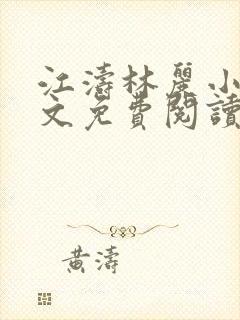 江濤林麗小
文免費閱讀
黄濤